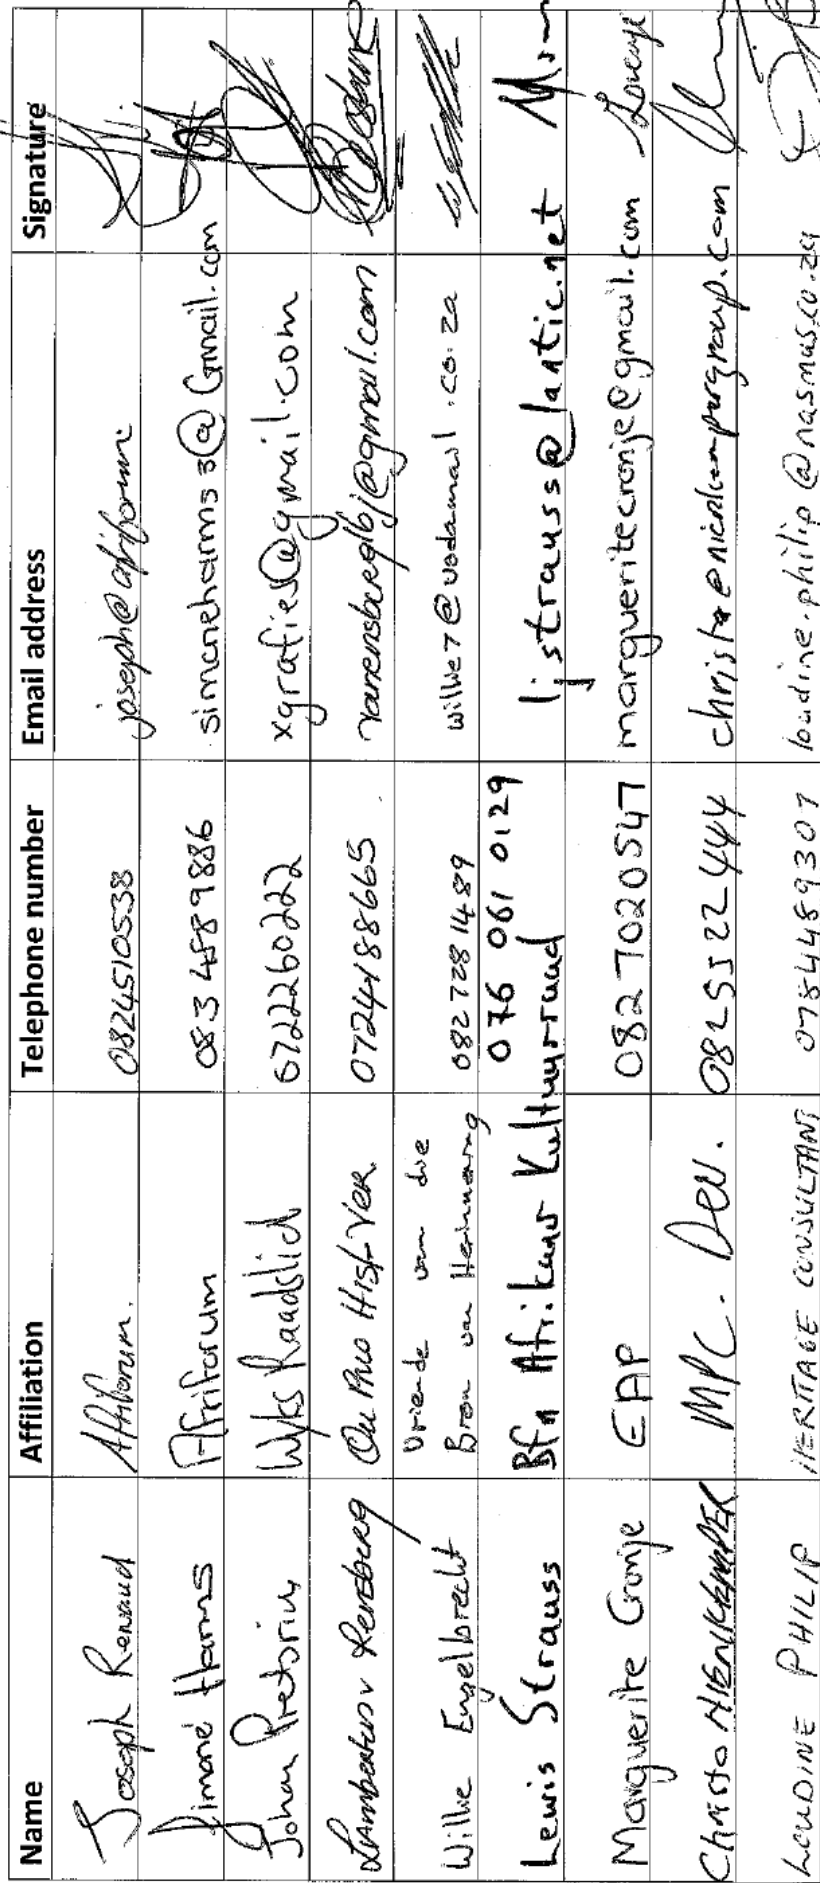 Name Affiliation Telephone number Email address Signature
Joseph Renaud Afriforum. 0824510538 joseph@afriforum.
Simoné Harms Afriforum 083 4589886 simoneharms3@Gmail.com
Johan Pretorius Wyks Raadslid 0722260222 xgrafies@gmail.com
Lambertus v Rensburg Ou Pres Hist Ver. 0724188665 vanrensburglbj@gmail.com
Willie Engelbrecht Vriende van die 0827281489 willie7@vodamail.co.za
Bron van Herinnering
Lewis Strauss Bfn Afrikaner Kultuurraad 076 061 0129 ljstrauss@lantic.net
Marguerite Cronje EAP 082 7020547 margueritecronje@gmail.com
Christo NIENKEMPER MPC. Dev. 0825522444
LOUDINE PHILIP HERITAGE CONSULTANT 0784489307 loudine.philip@nasmus.co.za